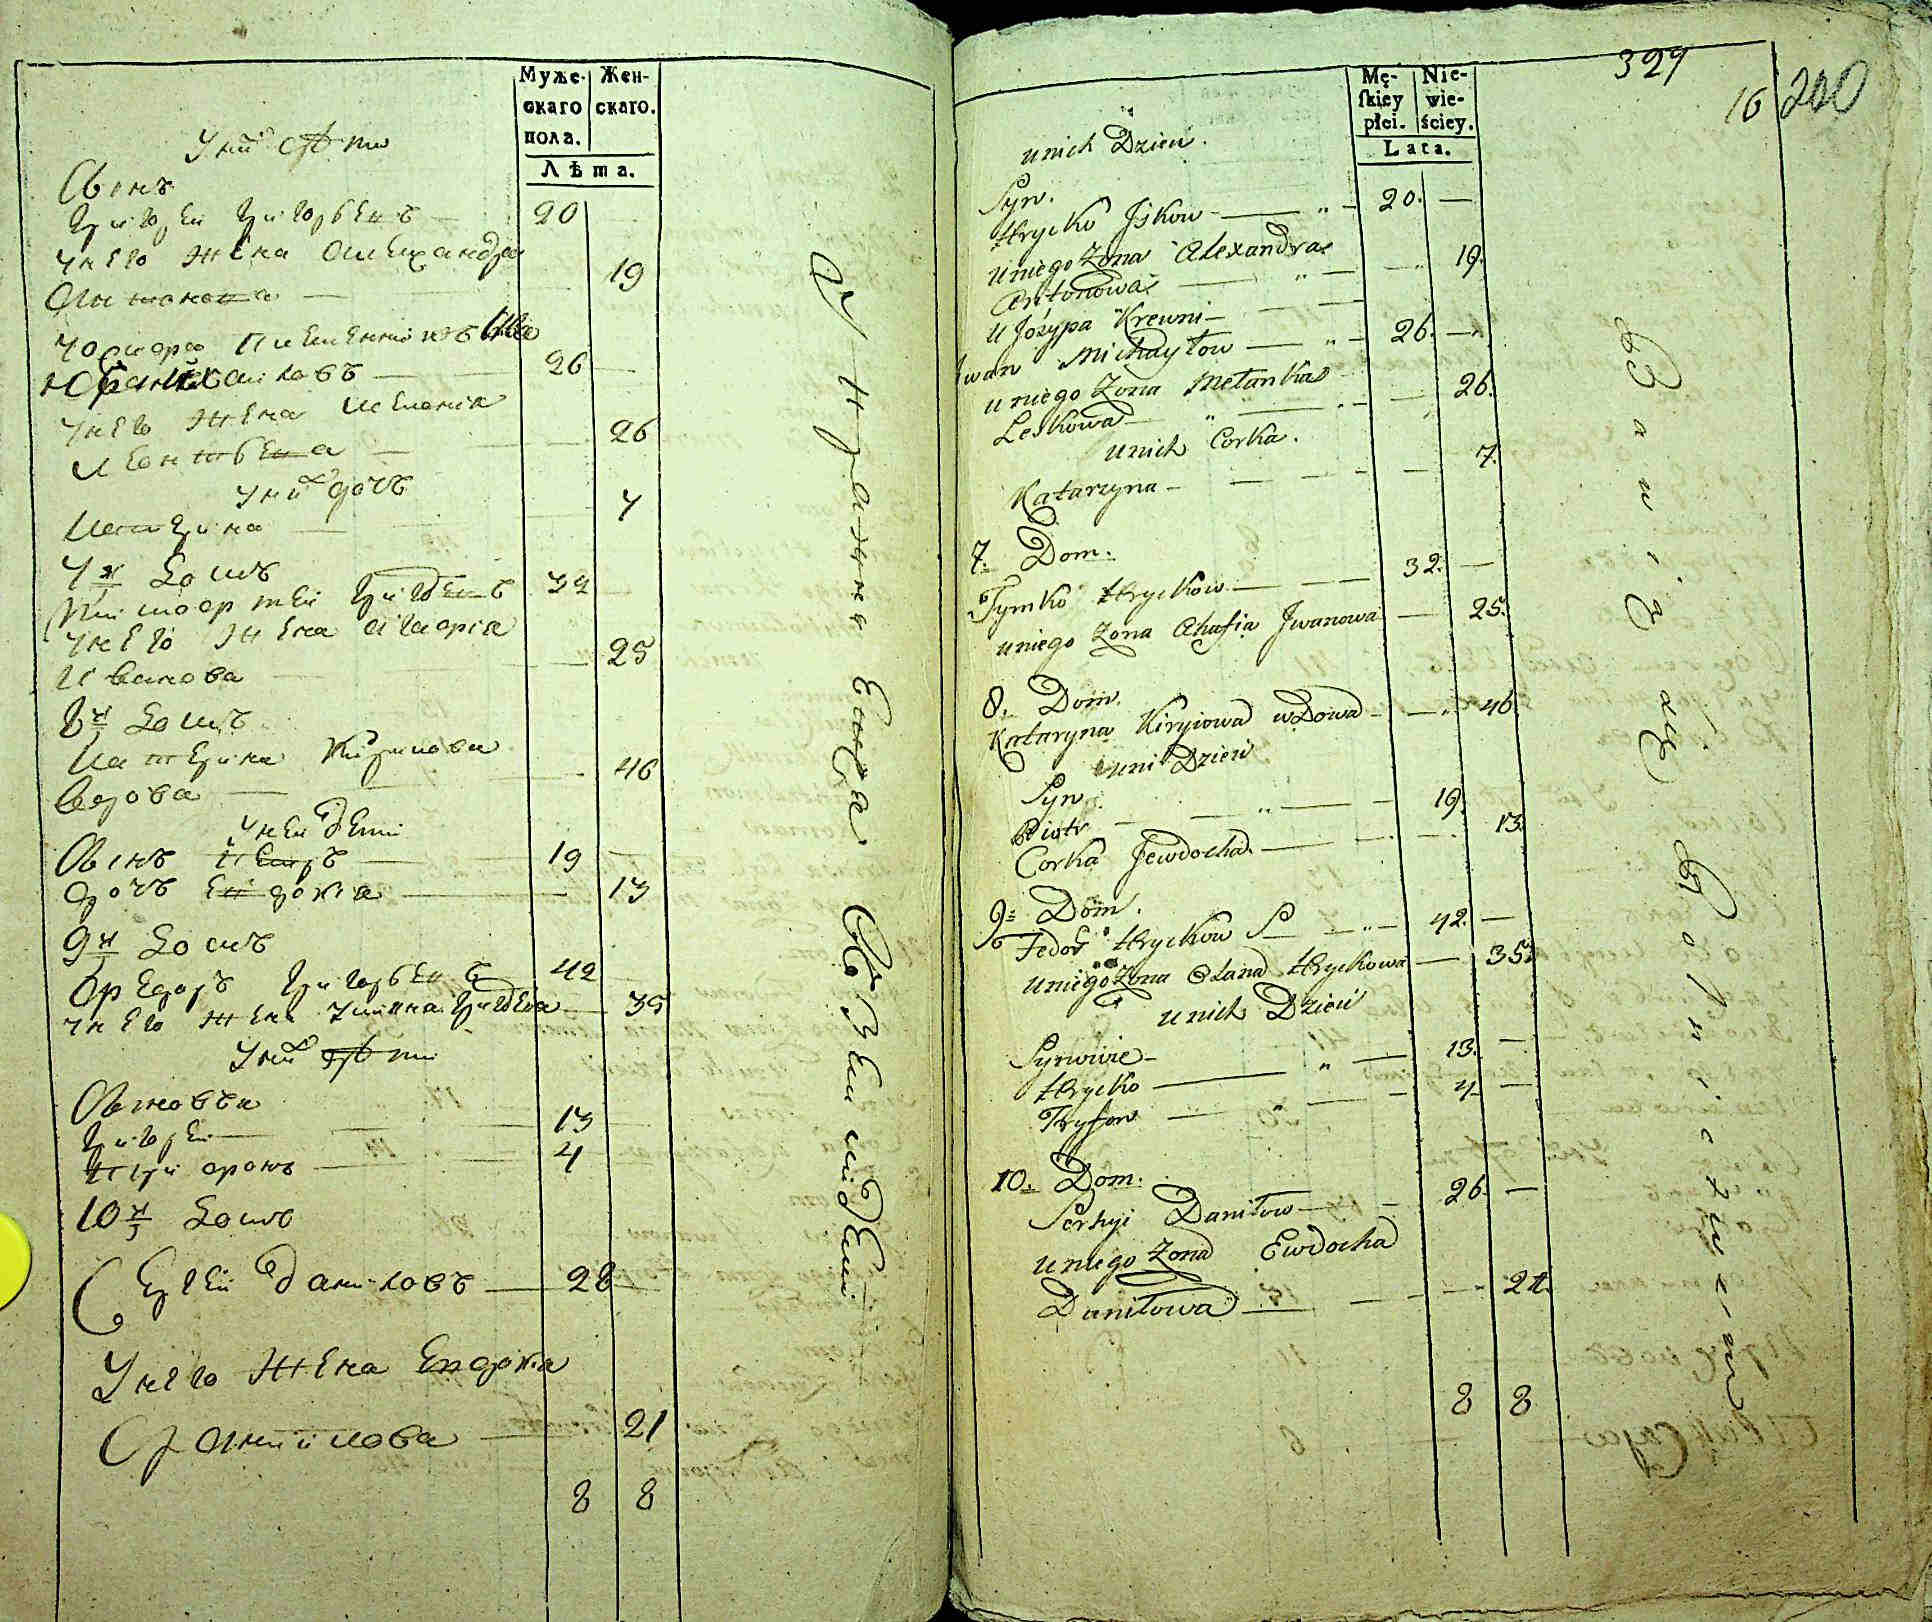 Муже-
скаго
пола.
Жен-
скаго.
Лѣта.
У нихъ дѣти
Сынъ
Григорей Григорьевъ 20
У него жена Александра
Антонова 19
Иванъ
Михайловъ 26
У него жена Меланія
Леонтьева 26
У нихъ дочь
Катерина 7
7й Домъ
Тимофей Григорьевъ 32
У него жена Агафія
Иванова 25
8й Домъ
Катерина Кирилова
Вдова 46
У ней дети
Сынъ Петръ 19
Дочь Евдокія 13
9й Домъ
Федоръ Григорьевъ 42
У него жена Ульяна Григорьева 35
У нихъ дѣти
Сыновья
Григорей 13
Трифонъ 4
10й Домъ
Сергей Даниловъ 28
У него жена Евдокія
Данилова 21
8 8
329
16 200
Mę-
ſkiey
płci.
Nie-
wie-
ściey.
Lata.
unich Dzieci.
Syn.
Hrycko Jskow 20.
uniego Zona Alexandra
Antonowa 19.
u Jozypa Krewni
Jwan Michayłow 26.
uniego Zona Mełanka
Leskowa 26.
unich Corka.
Katarzyna 7.
7. Dom.
Tymko Hryckow 32.
uniego Zona Ahafia Jwanowa 25.
8. Dom.
Kataryna Kiryiowa wDowa 46.
uni Dzieci
Syn
Piotr 19.
Corka Jewdocha. 13.
9. Dom.
Fedor Hryckow 42.
uniego Zona Ołana Hryckowa 35.
unich Dzieci
Synowie
Hrycko 13.
Tryfon 4
10. Dom.
Serhyi Daniłow 26.
uniego Zona Ewdocha
Daniłowa 21.
8 8